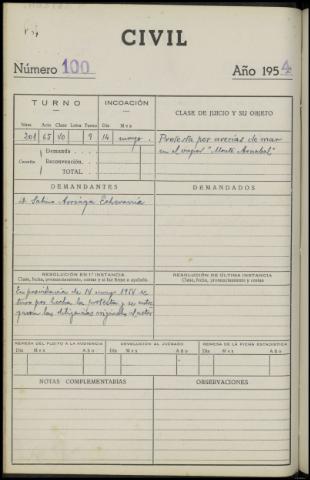 CIVIL
Número 100 Año 1954
TURNO INCOACIÓN CLASE DE JUICIO Y SU OBJETO
Núm. Acto Clase Letra Turno Día Mes
201 65 VO 9 14 mayo. Protesta por averías de mar
en el vapor "Monte Amabal"
Cuantía: Demanda
Reconvención.
TOTAL
DEMANDANTES DEMANDADOS
D. Sabino Arriaga Echevarria
RESOLUCIÓN EN 1.ª INSTANCIA RESOLUCIÓN DE ÚLTIMA INSTANCIA
Clase, fecha, pronunciamiento, costas y si fue firme o apelada Clase, fecha, pronunciamiento y costas
En providencia de 14 mayo 1954 se
tuvo por hecha la protesta y se entre
garon las diligencias originales al actor
REMESA DEL PLEITO A LA AUDIENCIA DEVOLUCIÓN AL JUZGADO REMESA DE LA FICHA ESTADÍSTICA
Día Mes Año Día Mes Año Día Mes Año
NOTAS COMPLEMENTARIAS OBSERVACIONES